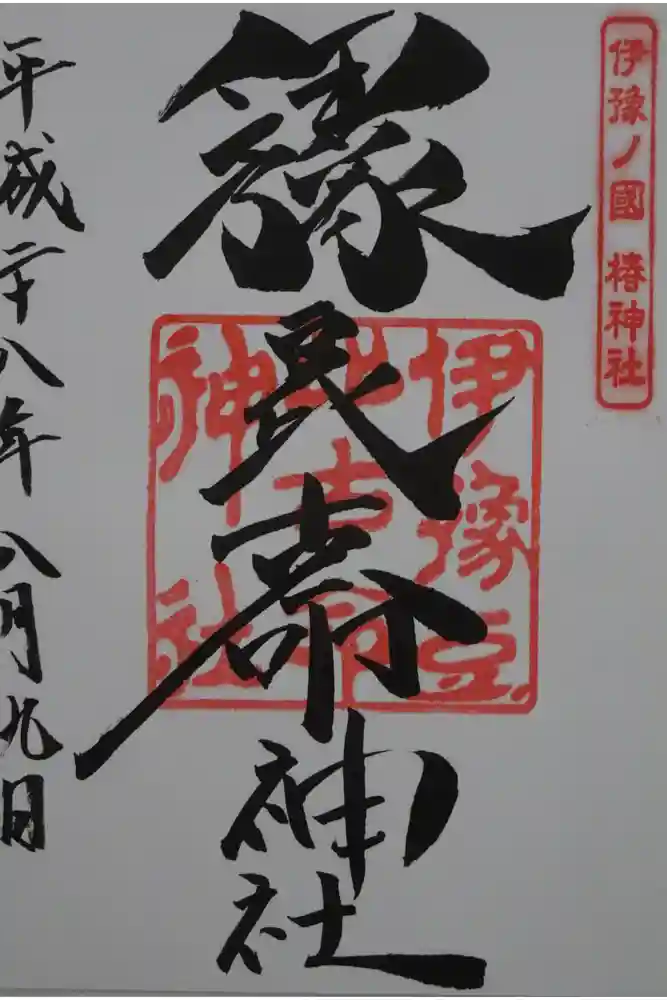 伊豫ノ國 椿神社
伊豫豆比古命神社
伊豫豆
比古命
神社
平成二十八年八月九日